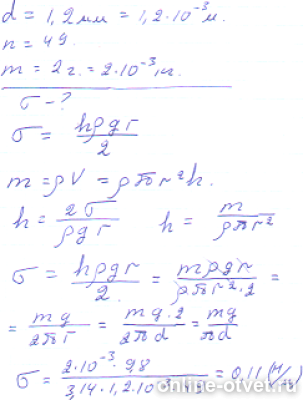 d = 1,2 мм = 1,2·10⁻³ м.
n = 49
m = 2 г. = 2·10⁻³ кг.
σ - ?
σ = hρgr / 2
m = ρV = ρπr²h.
h = 2σ / ρgr    h = m / ρπr²
σ = hρgr / 2 = mρgr / ρπr²·2 =
= mg / 2πr = mg·2 / 2πd = mg / πd
σ = 2·10⁻³·9,8 / 3,14·1,2·10 = 0,11 (Н/
online-otvet.ru